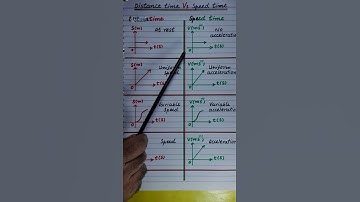 Distance time Vs Speed time
time
Speed time
S(m)
At rest
t(s)
V(ms⁻¹)
No acceleration
t(s)
S(m)
Uniform speed
t(s)
V(ms⁻¹)
Uniform acceleration
t(s)
S(m)
Variable speed
t(s)
V(ms⁻¹)
Variable acceleration
t(s)
Speed
t(s)
V(ms⁻¹)
Deceleration
t(s)